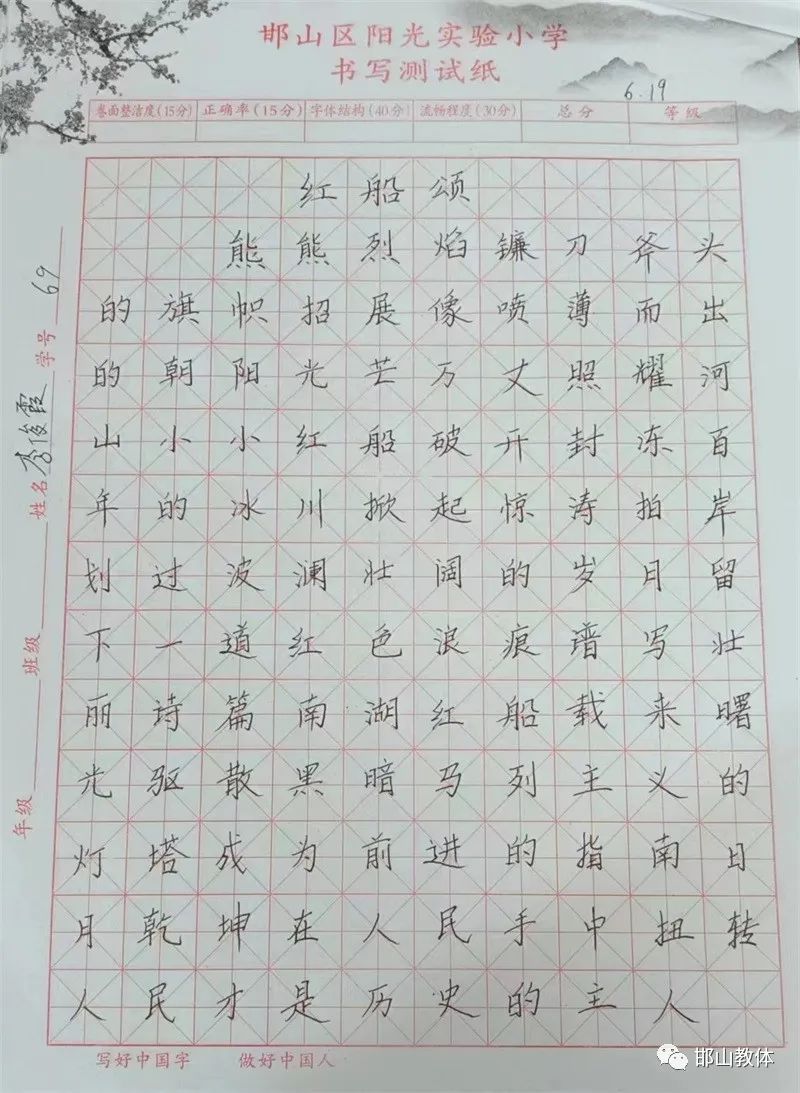 邯山区阳光实验小学
书写测试纸
6.19
卷面整洁度(15分) 正确率(15分) 字体结构(40分) 流畅程度(30分) 总分 等级
年级 班级 姓名 李俊霞 学号 69
红船颂
熊熊烈焰镰刀斧头
的旗帜招展像喷薄而出
的朝阳光芒万丈照耀河
山小小红船破开封冻百
年的冰川掀起惊涛拍岸
划过波澜壮阔的岁月留
下一道红色浪痕谱写壮
丽诗篇南湖红船载来曙
光驱散黑暗马列主义的
灯塔成为前进的指南日
月乾坤在人民手中扭转
人民才是历史的主人
写好中国字 做好中国人
邯山教体